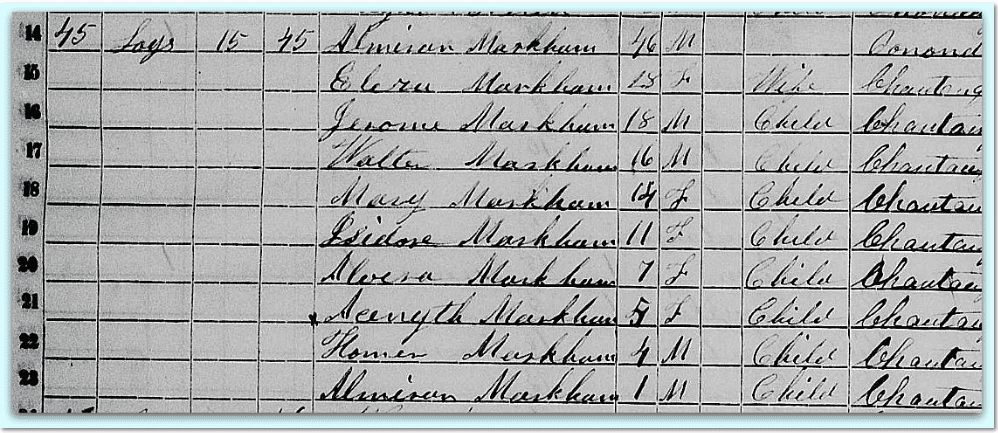 14 45 Logs 15 45 Almiron Markham 46 M Onond
15 Markham F Wife Chautauq
16 Jerome Markham 18 M Child Chautau
17 Walter Markham 16 M Child Chautau
18 Mary Markham 14 F Child Chautau
19 Isidore Markham 11 F Child Chautau
20 Alvera Markham 7 F Child Chautau
21 Acenyth Markham 5 F Child Chautau
22 Homer Markham 4 M Child Chautau
23 Almiron Markham 1 M Child Chautau